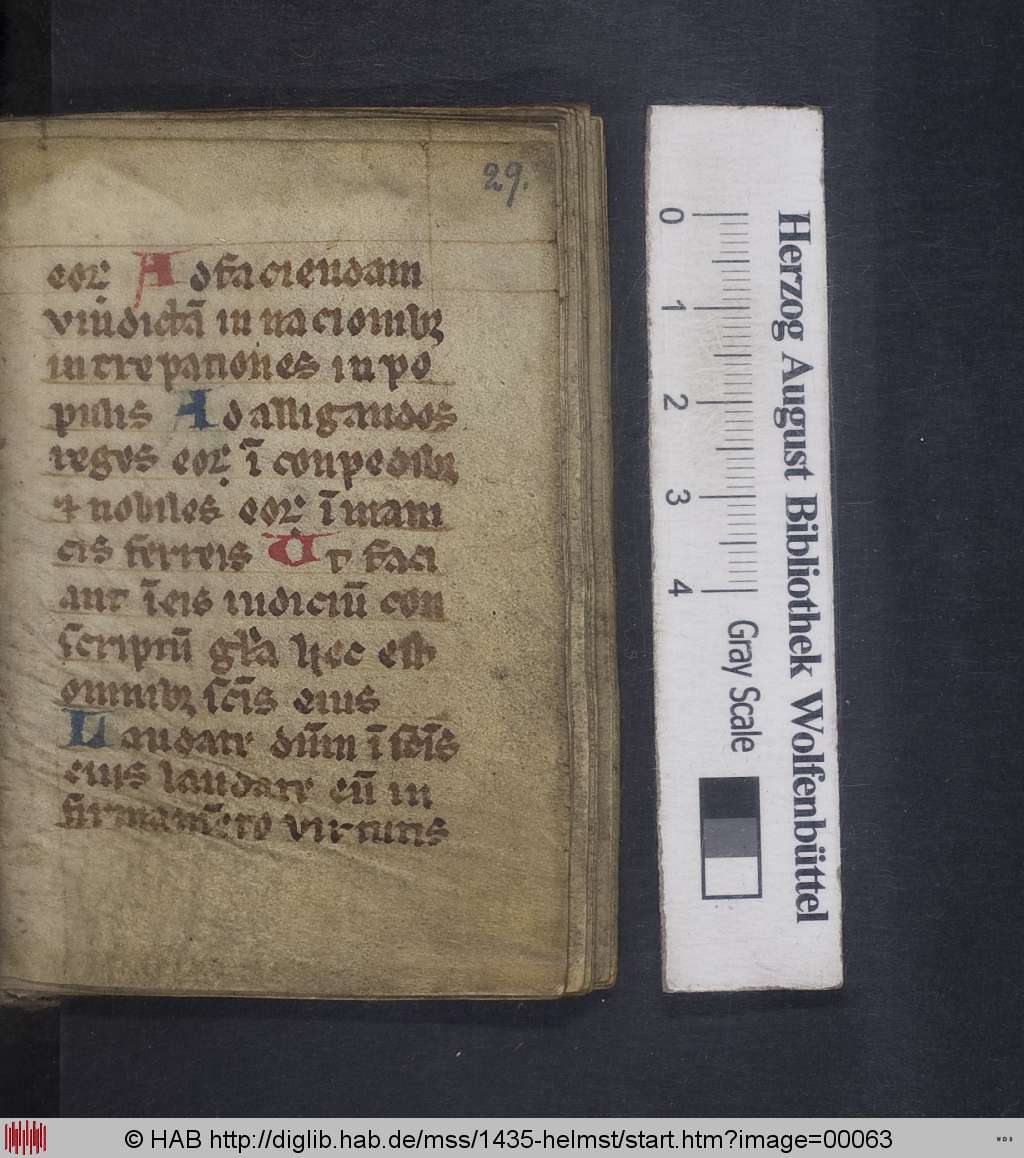 29.
eoꝝ Ad faciendam
vindictā in nacionibꝫ
increpationes in po
pulis Ad alligandos
reges eoꝝ ī conpedibꝫ
⁊ nobiles eoꝝ ī mani
cis ferreis Ut faci
ant ī eis iudiciū con
scriptū gl̄a hec est
omnibꝫ sc̄is eius
Laudate dn̄m ī sc̄is
eius laudate eū in
firmam̄eto virtutis
0
1
2
3
4
Gray Scale
Herzog August Bibliothek Wolfenbüttel
© HAB http://diglib.hab.de/mss/1435-helmst/start.htm?image=00063